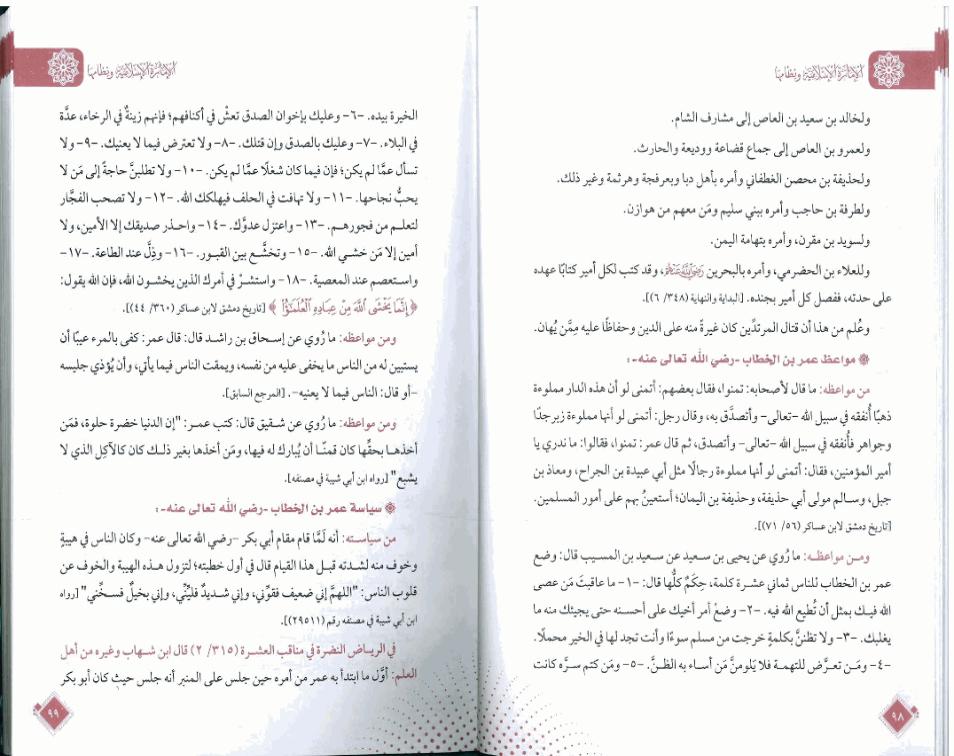 الإمارة الإسلامية ونظامها
ولخالد بن سعيد بن العاص إلى مشارف الشام.
ولعمرو بن العاص إلى جماع قضاعة ووديعة والحارث.
ولحذيفة بن محصن الغطفاني وأمره بأهل دبا وبعرفجة وهرثمة وغير ذلك.
ولطرفة بن حاجب وأمره ببني سليم ومَن معهم من هوازن.
ولسويد بن مقرن، وأمره بتهامة اليمن.
وللعلاء بن الحضرمي، وأمره بالبحرين رضي الله عنهم، وقد كتب لكل أمير كتابًا عهده
على حدته، ففصل كل أمير بجنده. [البداية والنهاية (٣٤٨/ ٦)].
وعُلم من هذا أن قتال المرتدِّين كان غيرةً منه على الدين وحفاظًا عليه مِمَّن يُهان.
مواعظ عمر بن الخطاب -رضي الله تعالى عنه-:
من مواعظه: ما قال لأصحابه: تمنوا، فقال بعضهم: أتمنى لو أن هذه الدار مملوءة
ذهبًا أُنفقه في سبيل الله -تعالى- وأتصدَّق به، وقال رجل: أتمنى لو أنها مملوءة زبرجدًا
وجواهر فأُنفقه في سبيل الله -تعالى- وأتصدق، ثم قال عمر: تمنوا، فقالوا: ما ندري يا
أمير المؤمنين، فقال: أتمنى لو أنها مملوءة رجالًا مثل أبي عبيدة بن الجراح، ومعاذ بن
جبل، وسالم مولى أبي حذيفة، وحذيفة بن اليمان؛ أستعينُ بهم على أمور المسلمين.
[تاريخ دمشق لابن عساكر (٥٦/ ٧١)].
ومن مواعظه: ما رُوي عن يحيى بن سعيد عن سعيد بن المسيب قال: وضع
عمر بن الخطاب للناس ثماني عشرة كلمة، حِكَمٌ كلُّها قال: -١- ما عاقبتَ مَن عصى
الله فيك بمثل أن تُطيع الله فيه. -٢- وضعْ أمر أخيك على أحسنه حتى يجيئك منه ما
يغلبك. -٣- ولا تظننَّ بكلمةٍ خرجت من مسلم سوءًا وأنت تجد لها في الخير محملًا.
-٤- ومَن تعرَّض للتهمة فلا يَلومنَّ مَن أساء به الظنَّ. -٥- ومَن كتم سرَّه كانت
٩٨
الإمارة الإسلامية ونظامها
الخيرة بيده. -٦- وعليك بإخوان الصدق تعشْ في أكنافهم؛ فإنهم زينةٌ في الرخاء، عدَّة
في البلاء. -٧- وعليك بالصدق وإن قتلك. -٨- ولا تعترض فيما لا يعنيك. -٩- ولا
تسأل عمَّا لم يكن؛ فإن فيما كان شغلًا عمَّا لم يكن. -١٠- ولا تطلبنَّ حاجةً إلى مَن لا
يحبُّ نجاحها. -١١- ولا تهافت في الحلف فيهلكك الله. -١٢- ولا تصحب الفجَّار
لتعلم من فجورهم. -١٣- واعتزل عدوَّك. -١٤- واحذر صديقك إلا الأمين، ولا
أمين إلا مَن خشي الله. -١٥- وتخشَّع بين القبور. -١٦- وذِلَّ عند الطاعة. -١٧-
واستعصم عند المعصية. -١٨- واستشرْ في أمرك الذين يخشون الله، فإن الله يقول:
﴿إِنَّمَا يَخْشَى اللَّهَ مِنْ عِبَادِهِ الْعُلَمَٰٓؤُا۟﴾ [تاريخ دمشق لابن عساكر (٣٦٠/ ٤٤)].
ومن مواعظه: ما رُوي عن إسحاق بن راشد قال: قال عمر: كفى بالمرء عيبًا أن
يستبين له من الناس ما يخفى عليه من نفسه، ويمقت الناس فيما يأتي، وأن يُؤذي جليسه
-أو قال: الناس فيما لا يعنيه-. [المرجع السابق].
ومن مواعظه: ما رُوي عن شقيق قال: كتب عمر: "إن الدنيا خضرة حلوة، فمَن
أخذها بحقِّها كان قمنًا أن يُبارك له فيها، ومَن أخذها بغير ذلك كان كالآكِل الذي لا
يشبع" [رواه ابن أبي شيبة في مصنفه].
سياسة عمر بن الخطاب -رضي الله تعالى عنه-:
من سياسته: أنه لَمَّا قام مقام أبي بكر -رضي الله تعالى عنه- وكان الناس في هيبةٍ
وخوف منه لشدته قبل هذا القيام قال في أول خطبته؛ لتزول هذه الهيبة والخوف عن
قلوب الناس: "اللهمَّ إني ضعيف فقوِّني، وإني شديدٌ فليِّنِّي، وإني بخيلٌ فسخِّني" [رواه
ابن أبي شيبة في مصنفه رقم (٢٩٥١١)].
في الرياض النضرة في مناقب العشرة (٣١٥/ ٢) قال ابن شهاب وغيره من أهل
العلم: أوَّل ما ابتدأ به عمر من أمره حين جلس على المنبر أنه جلس حيث كان أبو بكر
٩٩